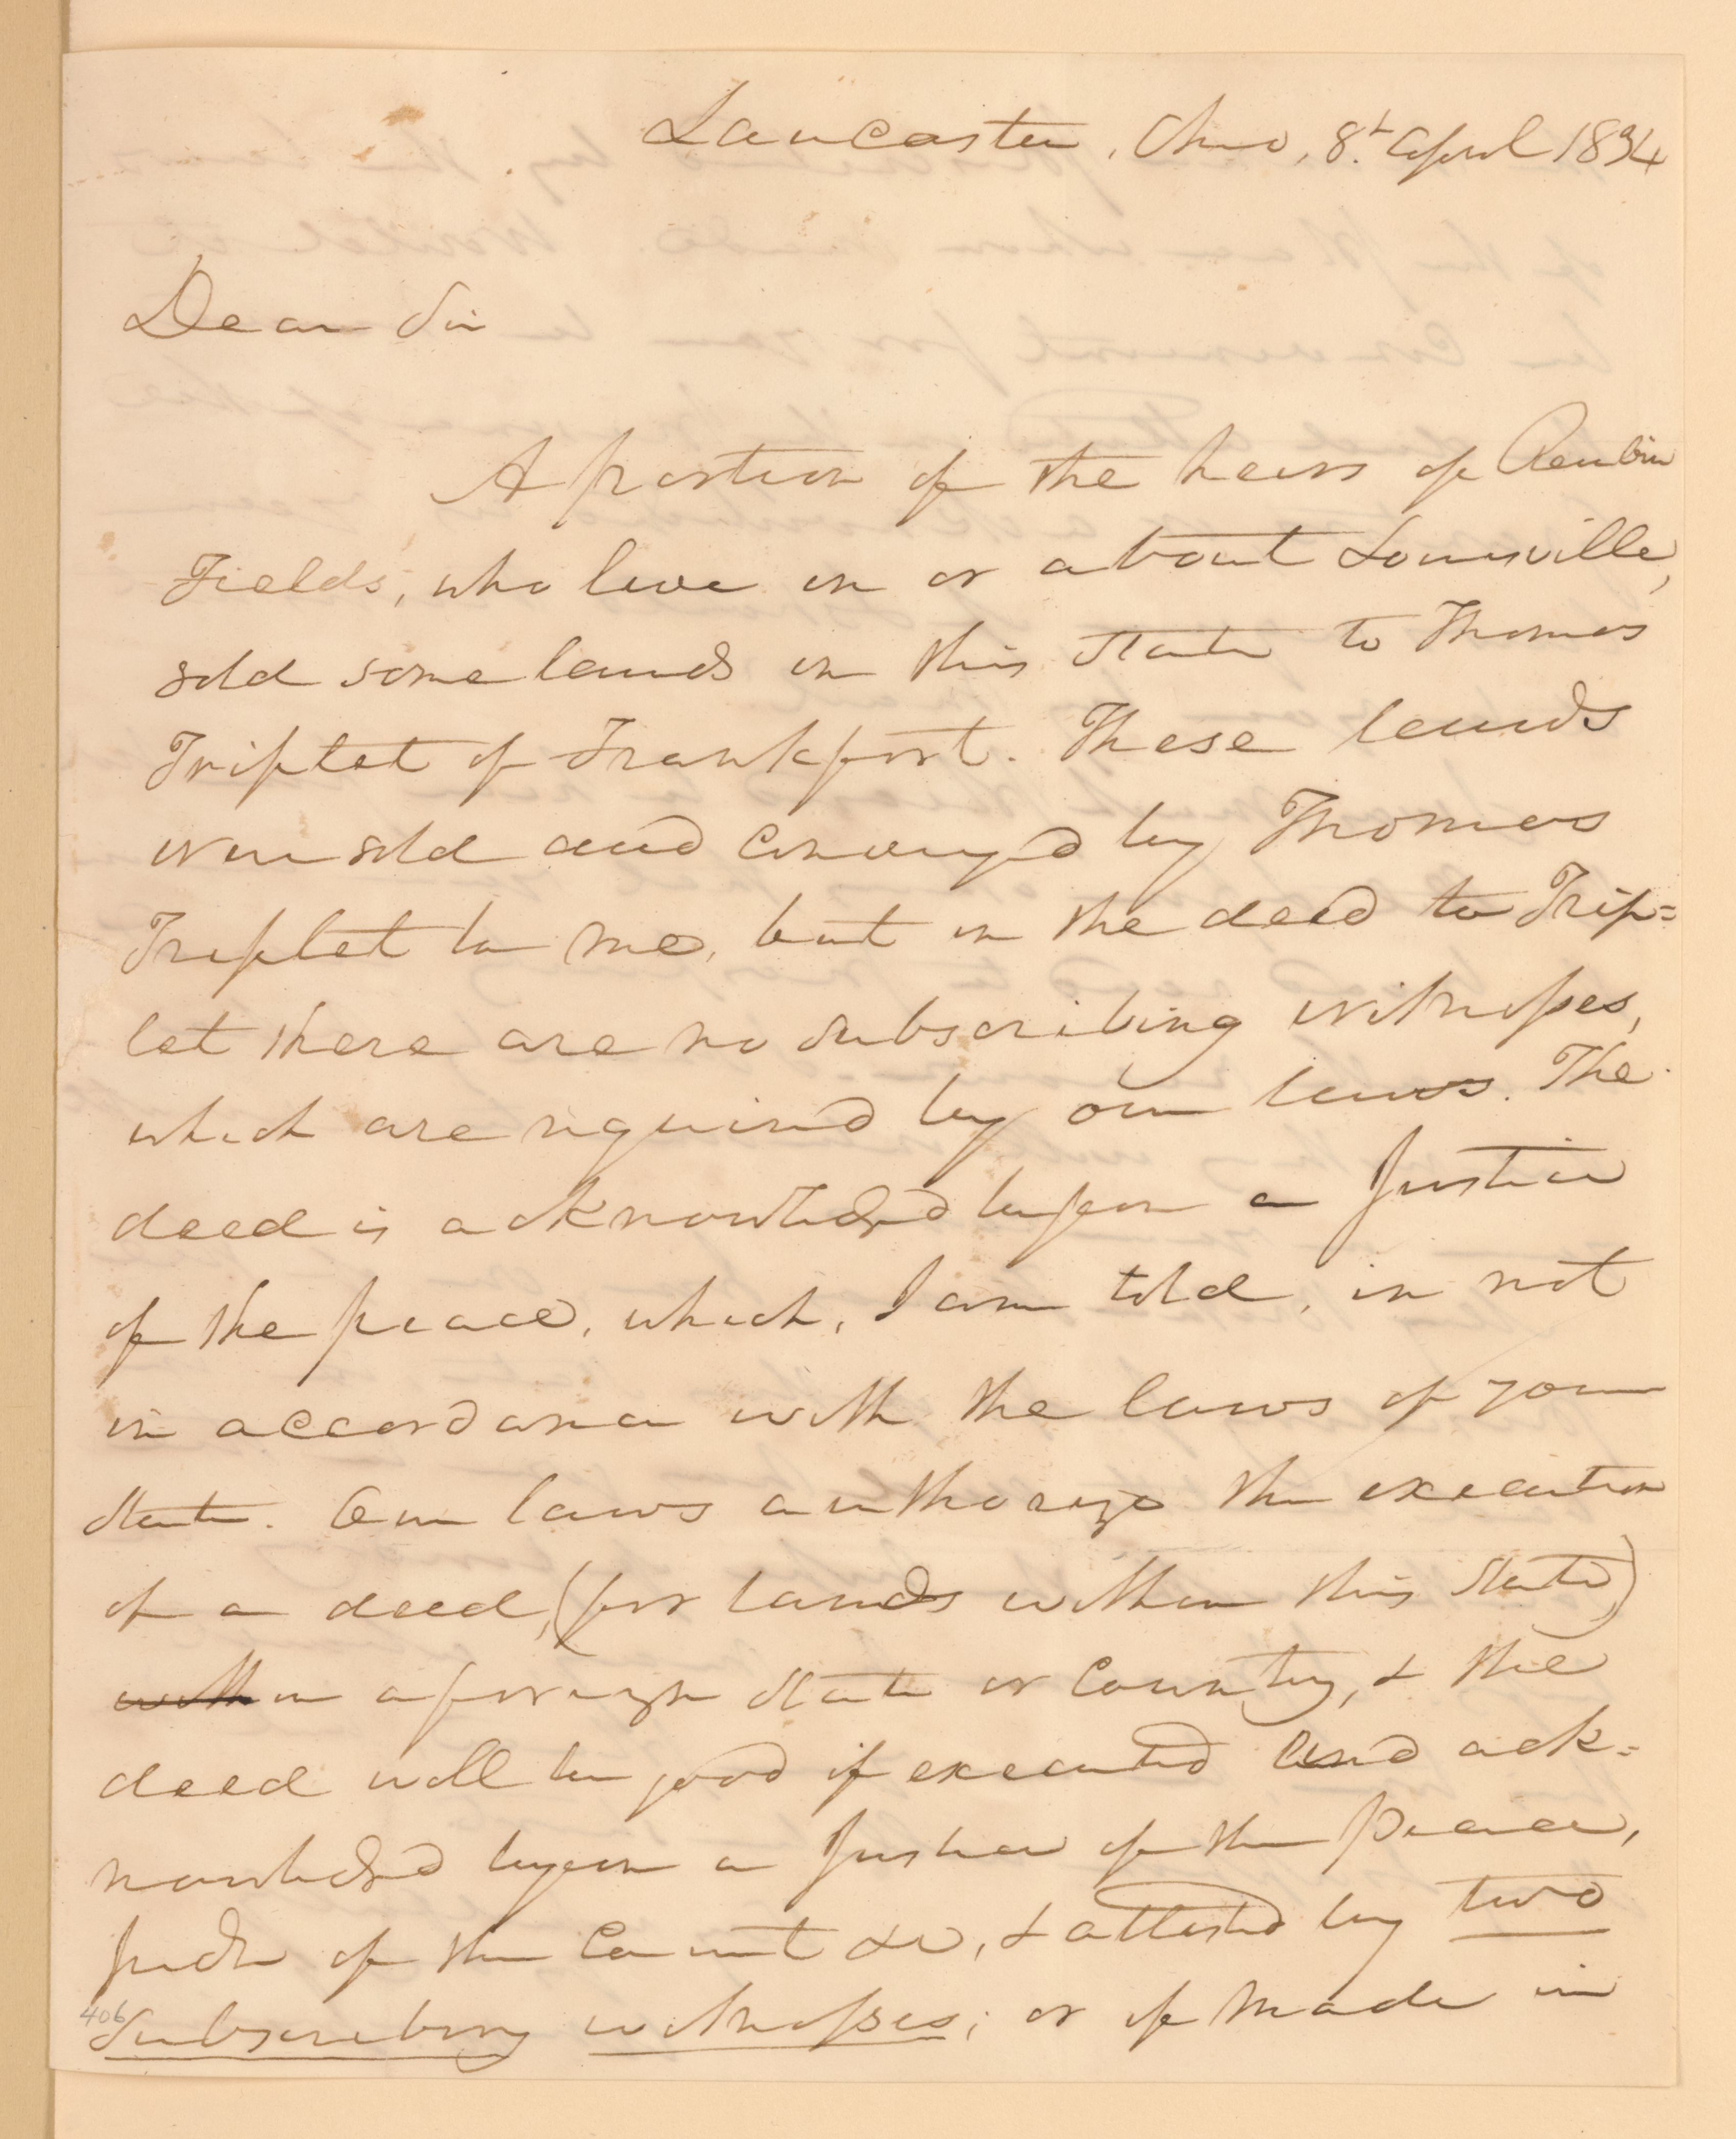 Lancaster, Ohio, 8.t April 1834
Dear Sir
A portion of the heirs of Reubin
Fields, who live in or about Louisville,
sold some lands in this State to Thomas
Triplet of Frankfort. These lands
were sold and conveyed by Thomas
Triplet to me, but in the deed to Trip=
let there are no subscribing witnesses,
which are required by our laws. The
deed is acknowledged before a Justice
of the peace, which, I am told, is not
in accordance with the laws of your
State. Our laws authorize the execution
of a deed, (for lands within this State)
within a foreign State or Country, & the
deed will be good if executed and ack=
nowledged before a Justice of the Peace,
Judge of the Court &c, & attested by two
406
subscribing witnesses; or if made in